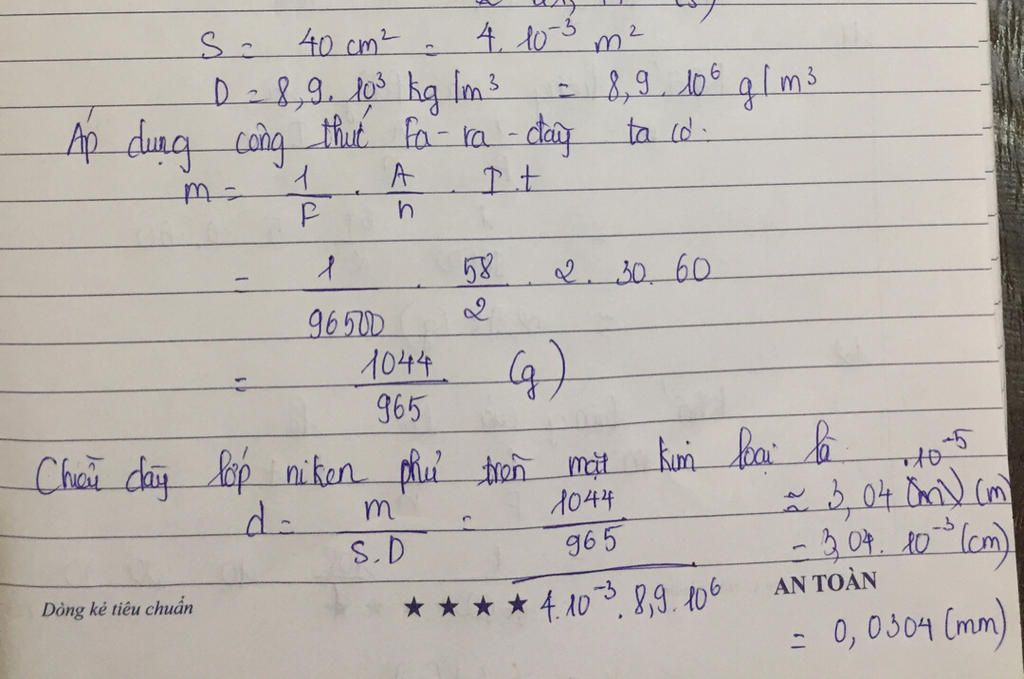 S = 40 cm² = 4. 10⁻³ m²
D = 8,9. 10³ kg/m³ = 8,9. 10⁶ g/m³
Áp dụng công thức Fa-ra-đây ta có.
m = 1/F . A/n . I. t
= 1/96500 . 58/2 . 2. 30. 60
= 1044/965 (g)
Chiều dày lớp niken phủ trên mặt kim loại là
d = m/S.D = 1044/965 / 4.10⁻³. 8,9. 10⁶ ≈ 3,04 .10⁻⁵ (m)
= 3,04. 10⁻³ (cm)
= 0,0304 (mm)
Dòng kẻ tiêu chuẩn ★ ★ ★ ★ AN TOÀN